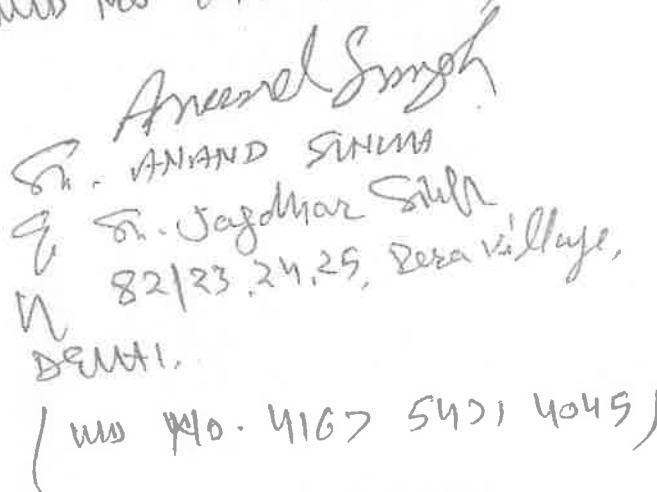 No
Anand Singh
Sh. ANAND SINGH
S/o Sh. Jagdhar Singh
R/o 82/23,24,25, Dera Village,
DELHI.
(UID No. 4167 5471 4045)